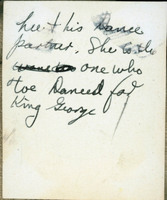 & his Dance
partner. She is the
one who
Toe Danced for
King George